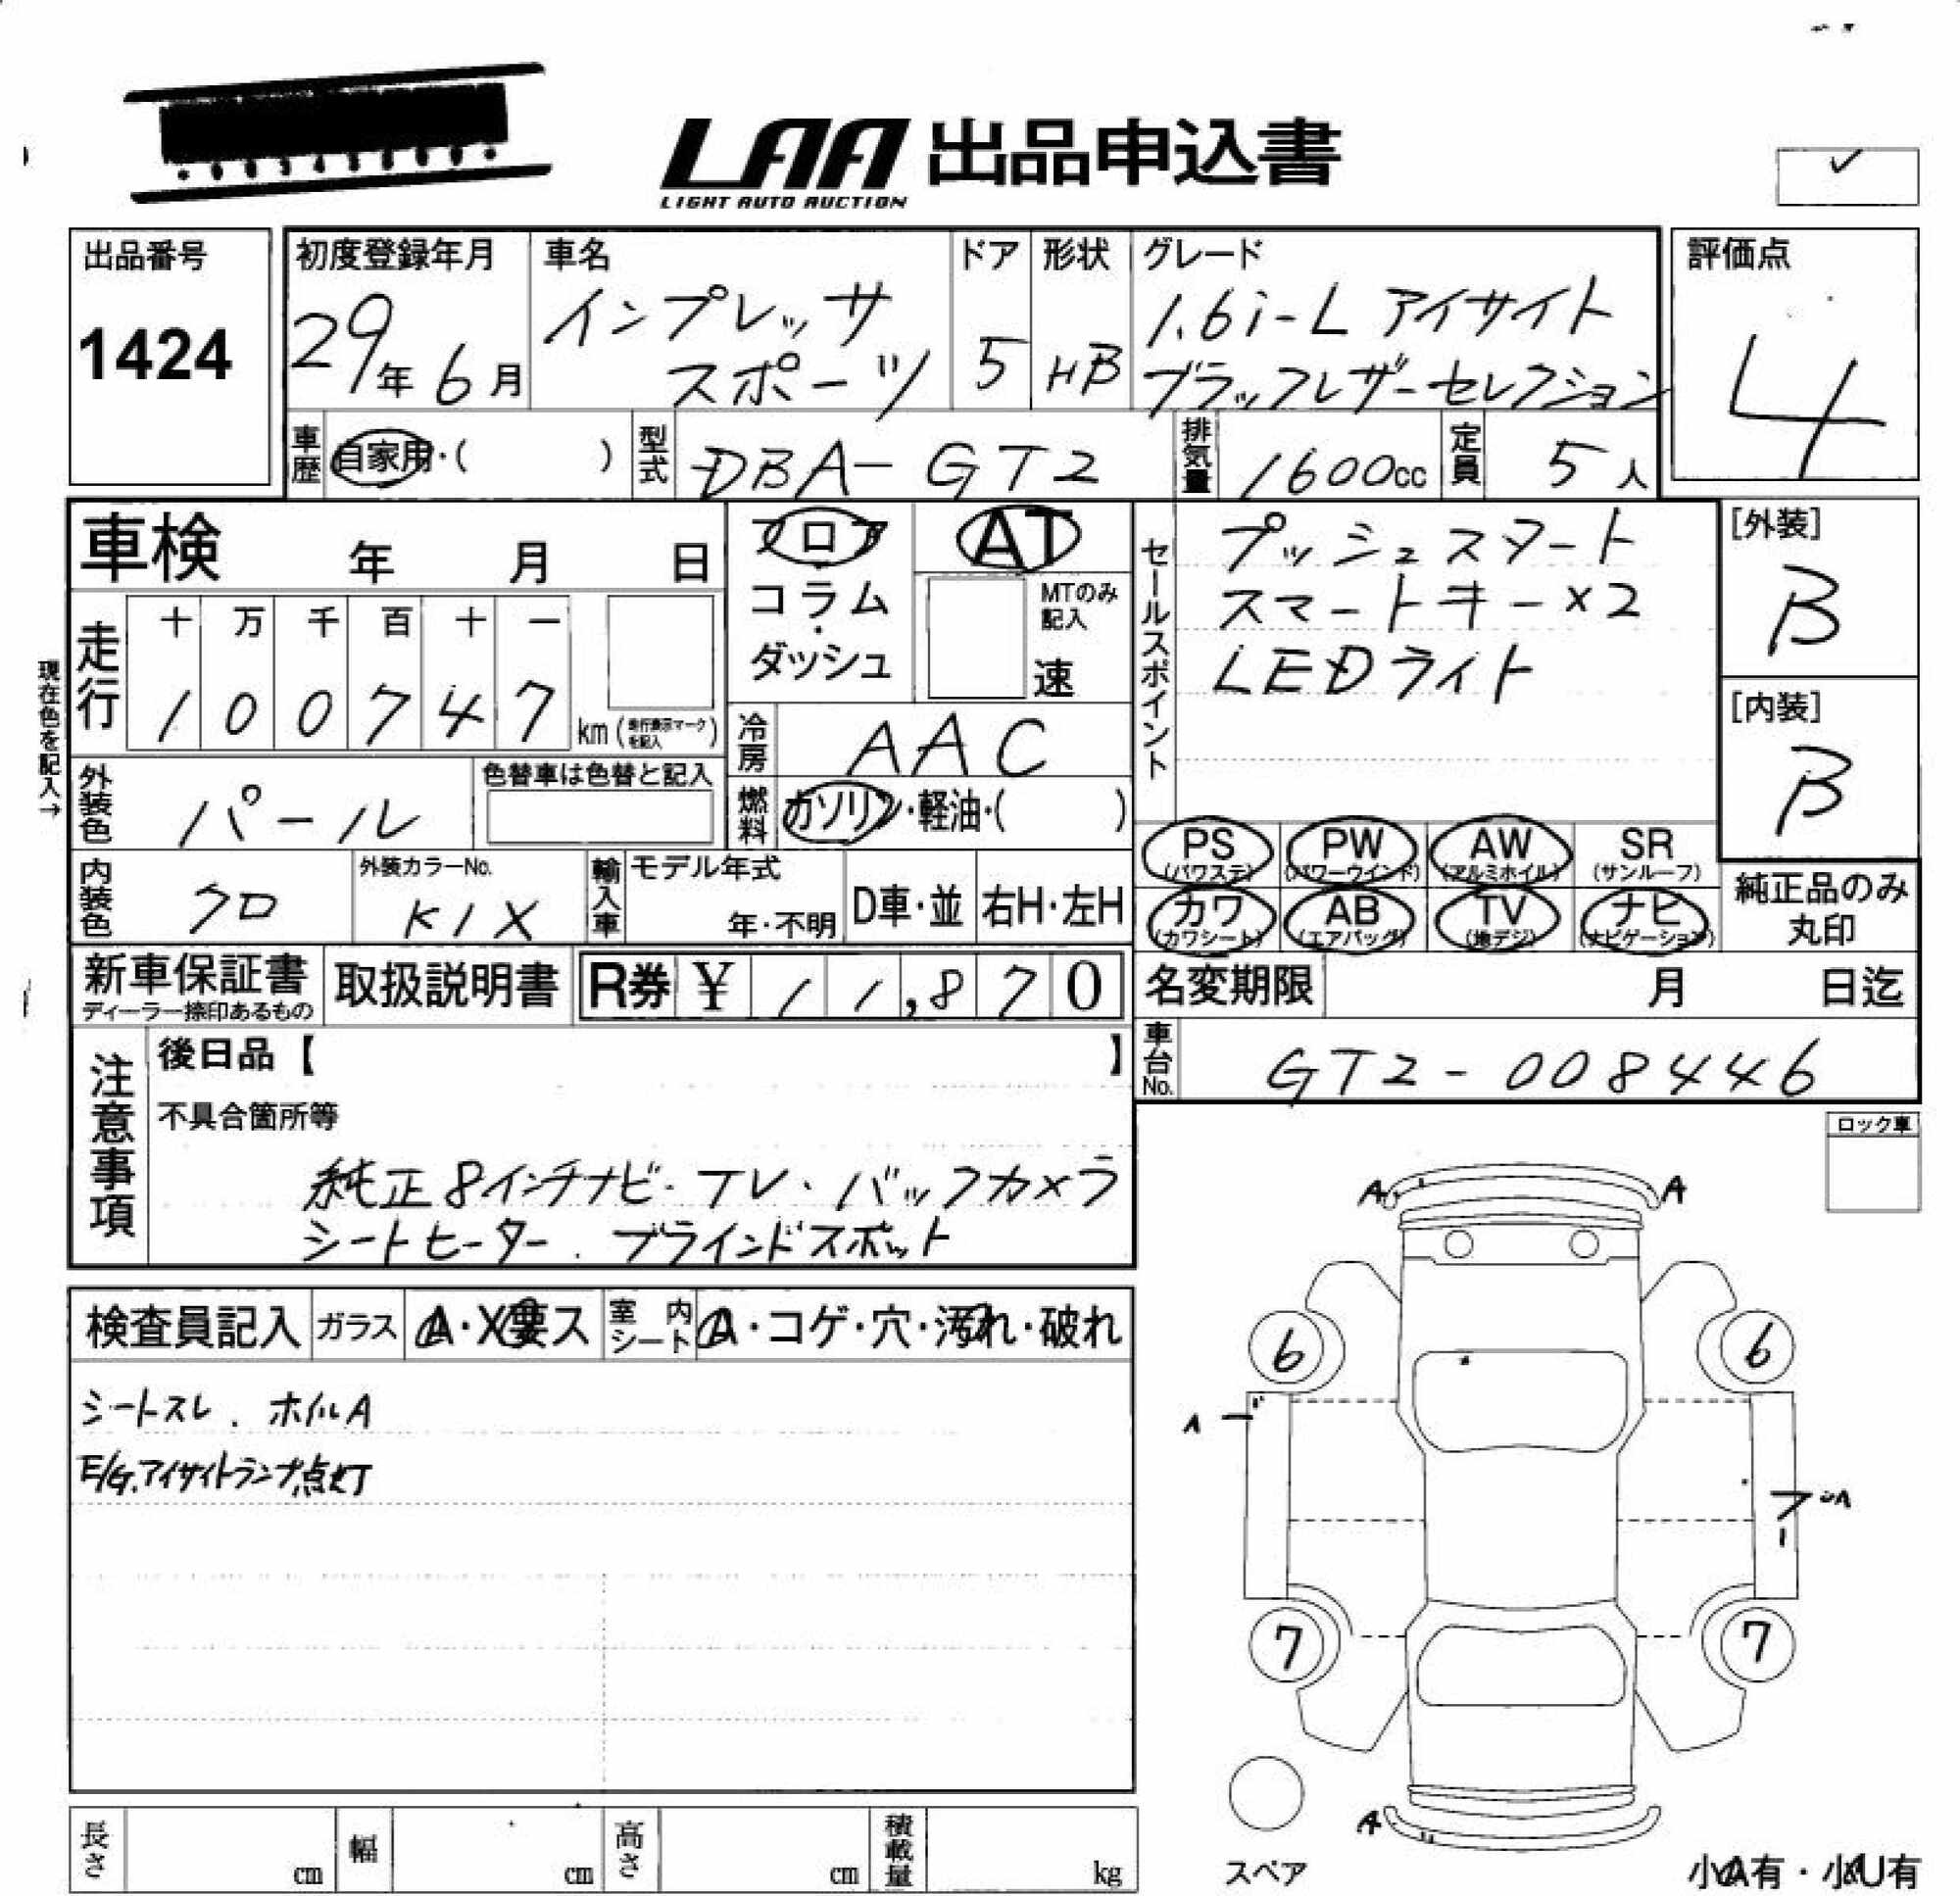 LAA 出品申込書
LIGHT AUTO AUCTION
出品番号
1424
初度登録年月
29年 6月
車名
インプレッサ
スポーツ
ドア
5
形状
HB
グレード
1.6i-L アイサイト
ブラックレザーセレクション
評価点
4
車歴
自家用・( )
型式
DBA-GT2
排気量
1600cc
定員
5人
車検 年 月 日
フロア
コラム
・
ダッシュ
AT
MTのみ
記入
速
セールスポイント
プッシュスタート
スマートキー×2
LEDライト
[外装]
B
[内装]
B
現在色を記入→
走行
十 万 千 百 十 一
1 0 0 7 4 7 km (走行表示マークを記入)
冷房
AAC
外装色
パール
色替車は色替と記入
燃料
ガソリン・軽油・( )
PS (パワステ)
PW (パワーウインド)
AW (アルミホイル)
SR (サンルーフ)
カワ (カワシート)
AB (エアバッグ)
TV (地デジ)
ナビ (ナビゲーション)
純正品のみ
丸印
内装色
クロ
外装カラーNo.
K1X
輸入車
モデル年式
年・不明
D車・並
右H・左H
新車保証書
ディーラー捺印あるもの
取扱説明書
R券 ¥ 11,870
名変期限 月 日迄
車台No.
GT2-008446
注意事項
後日品【 】
不具合箇所等
純正8インチナビ・TV・バックカメラ
シートヒーター．ブラインドスポット
ロック車
検査員記入
ガラス
A・X要ス
室内シート
A・コゲ・穴・汚れ・破れ
シートスレ．ホイルA
E/G.アイサイトランプ点灯
A A
6 6
A
A
7 7
A
スペア
小A有・小U有
長さ cm
幅 cm
高さ cm
積載量 kg